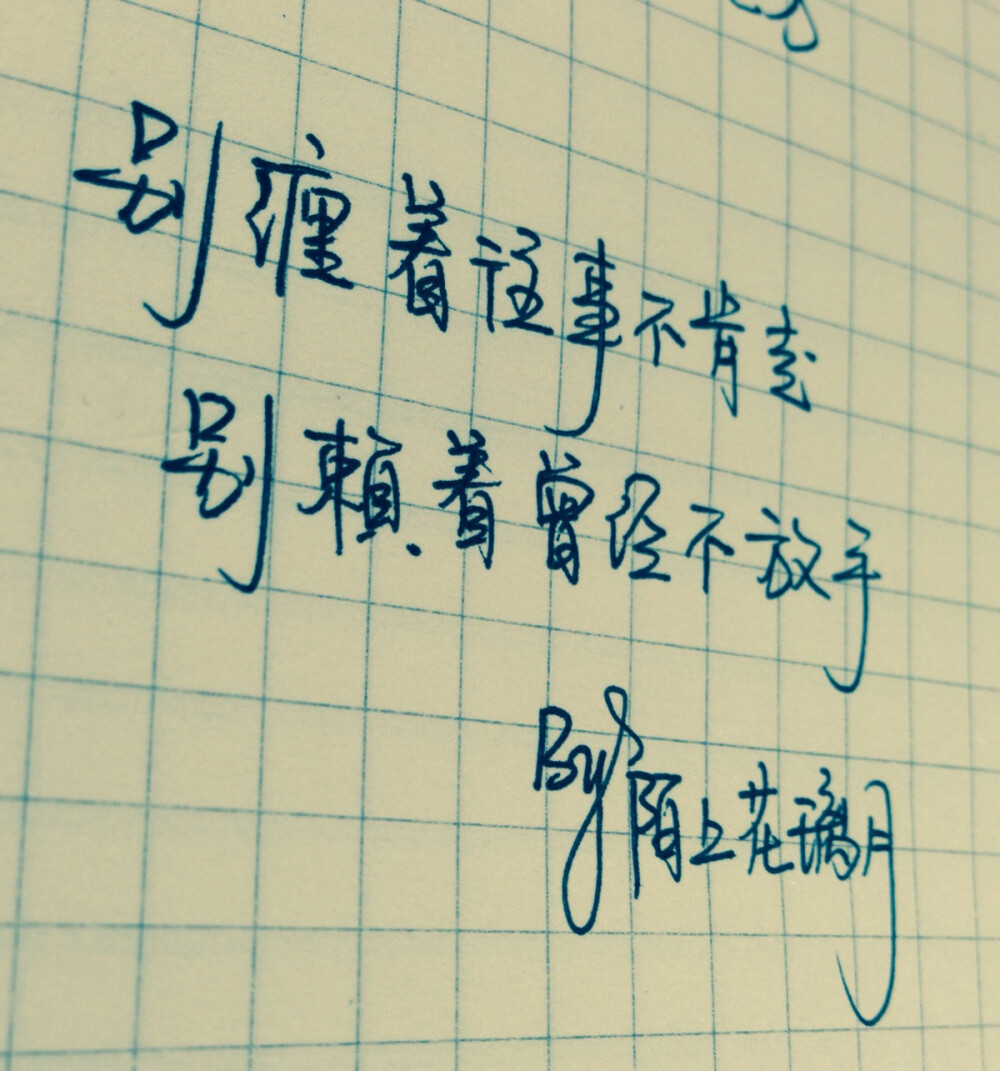 别缠着往事不肯走
别頼着曾经不放手
By 陌上花璃月